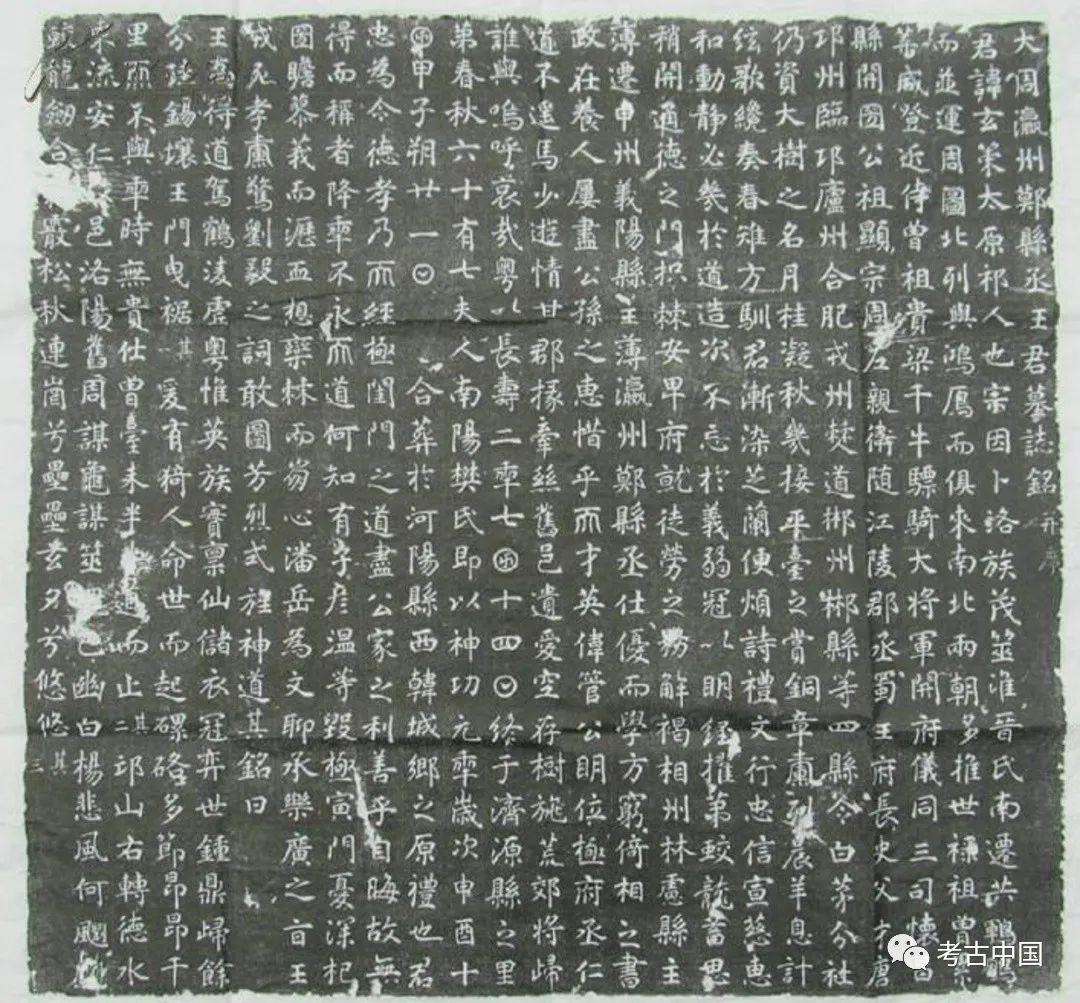 大周瀛州鄭縣丞王君墓誌銘 并序
君諱玄策太原祁人也宗因卜洛族茂筮淮晉氏南遷共鵾
而並運周圖北列與鴻鴈而俱來南北兩朝多推世祿祖曾
等威登近侍曾祖貴梁千牛驃騎大將軍開府儀同三司懷昌
縣開圀公祖顯宗周左親衛随江陵郡丞蜀王府長史父才唐
邛州臨邛廬州合肥戎州僰道郴州郴縣等四縣令白茅分社
仍資大樹之名月桂凝秋幾接平臺之賞銅章肅列晨羊息計
絃歌纔奏春雉方馴君漸染芝蘭便煩詩禮文行忠信宣慈惠
和動静必幾於道造次不忘於義弱冠以明經擢第蛟龍畜思
稍開通德之門枳棘安卑府就徒勞之務解褐相州林慮縣主
薄遷申州義陽縣主薄瀛州鄭縣丞仕優而學方窮倚相之書
政在養人屢盡公孫之惠惜乎而才英偉管公明位極府丞仁
道不遥馬少遊情甘郡掾牽絲舊邑遺愛空存樹旐荒郊將歸
誰與嗚呼哀哉粤以長壽二𠡦七囝十四〇終于濟源縣之里
第春秋六十有七夫人南陽樊氏即以神功元𠡦歲次申酉十
囝甲子朔廿一〇 合葬於河陽縣西韓城鄉之原禮也君
忠為令德孝乃而經極閨門之道盡公家之利善乎自晦故無
得而稱者降𠡦不永而道何知有子彦温等毀極寅門憂深杞
圀瞻慕莪而瀝血想欒林而劵心潘岳為文聊承樂廣之旨王
戎死孝肅驚劉毅之詞敢圖芳烈式旌神道其銘曰
王喬得道駕鶴淩虛粤惟英族實稟仙儲衣冠弈世鍾鼎歸餘
分珪錫壤王門曳裾其一 爰有猗人命世而起磥硌多節昂昂千
里而不與𠡦時無貴仕曾臺未半而止其二邙山右轉德水
東流安仁邑洛陽舊周謀龜謀筮已幽白楊悲風何颼
龍劒合散松秋連崗兮壘壘去夕兮悠悠其三
考古中国